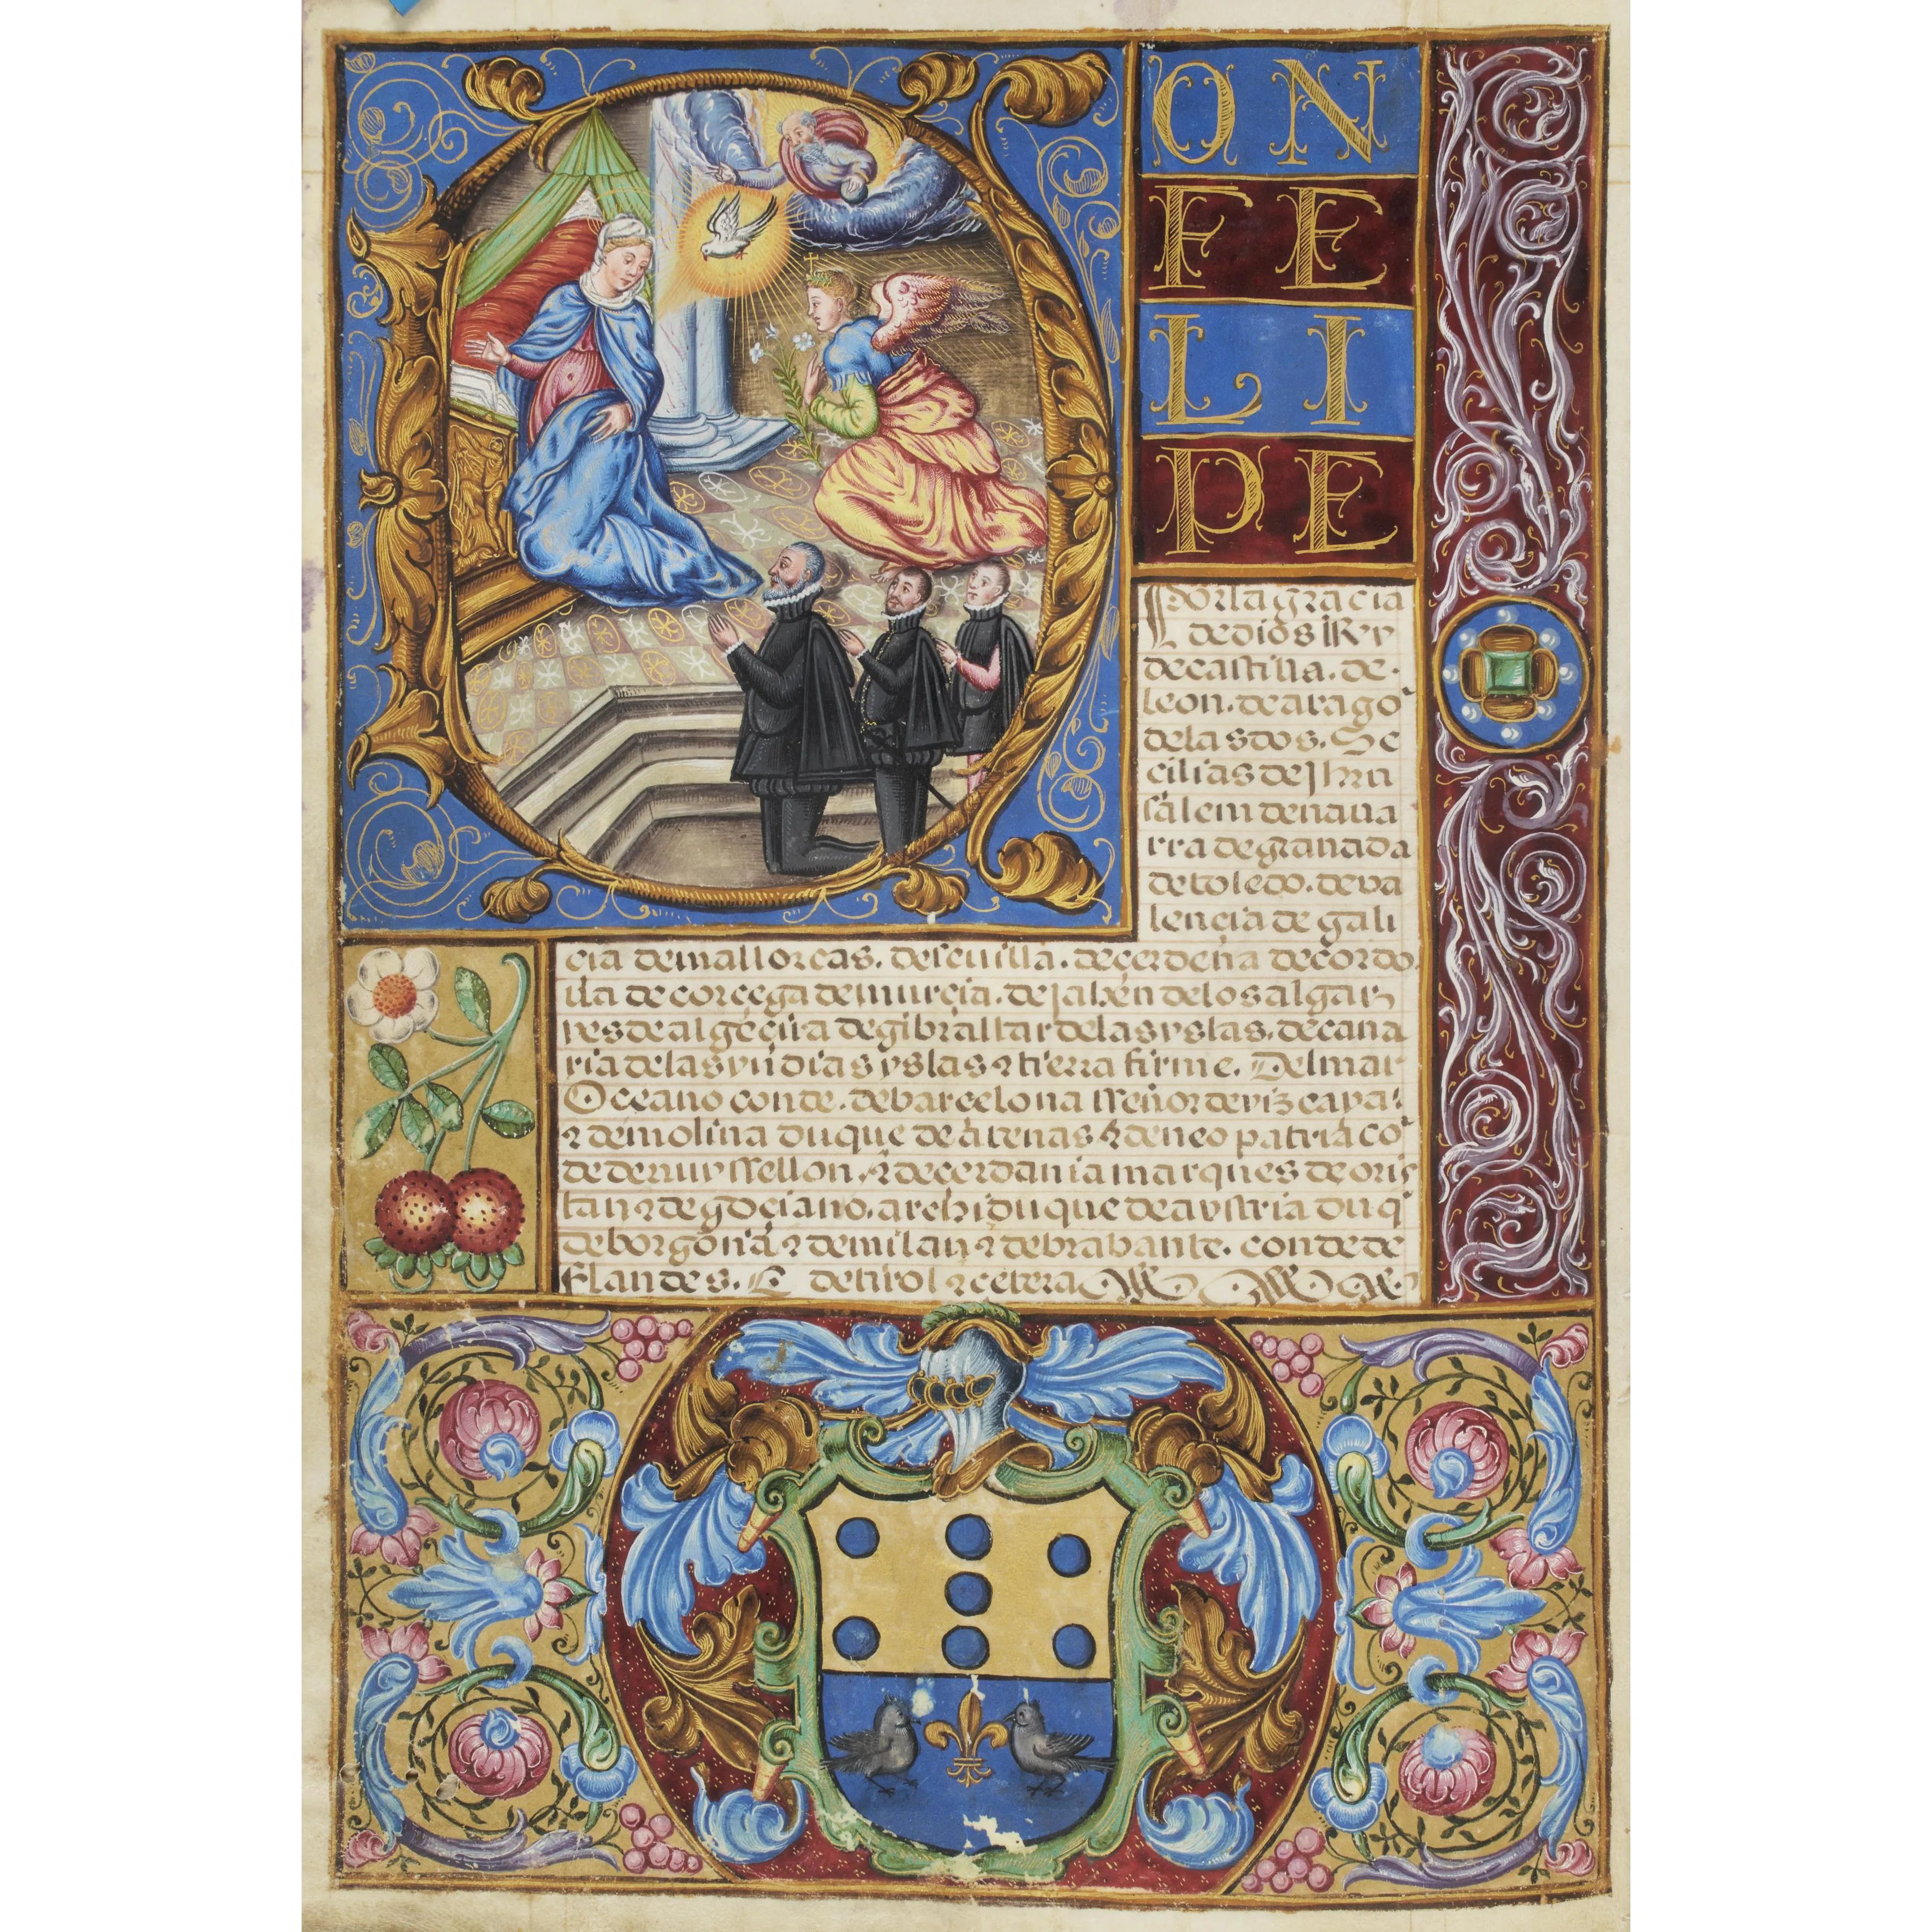 D
ON
FE
LI
PE
por la gracia
de dios Rey
de castilla. de.
leon. de arago
de las dos. Se
cilias de Jhru
salem de naua
rra de granada
de toledo. de va
lençia de gali
cia de mallorcas. de seuilla. de çerdeña de cordo
ua de corçega de murçia. de Jahén de los algar
ves de algeçira de gibraltar de las yslas. de cana
ria de las yndias yslas ⁊ tierra firme. Del mar
Oçeano conde. de barçelona sseñor de vizcaya.
⁊ de molina duque de atenas ⁊ de neo patria co
de de rruyssellon. ⁊ de cerdania marques de oris
tan ⁊ de goçiano. archiduque de avstria duq
de borgoña ⁊ de milan ⁊ de brabante. conde de
flandes. E de tirol ⁊ cetera